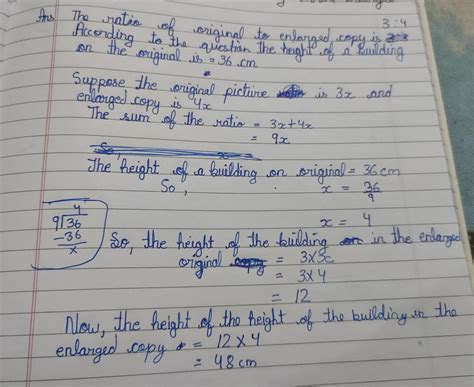 Ans The ratio of original to enlarged copy is 3:4
According to the question the height of a building
on the original is = 36 cm
Suppose, the original picture is 3x and
enlarged copy is 4x
The sum of the ratio = 3x+4x
= 9x
So,
The height of a building on original = 36cm
So, x = 36/9
x = 4
4
9√36
-36
x
So, the height of the building in the enlarged
original copy = 3×x
= 3×4
= 12
Now, the height of the height of the building in the
enlarged copy = 12×4
= 48cm